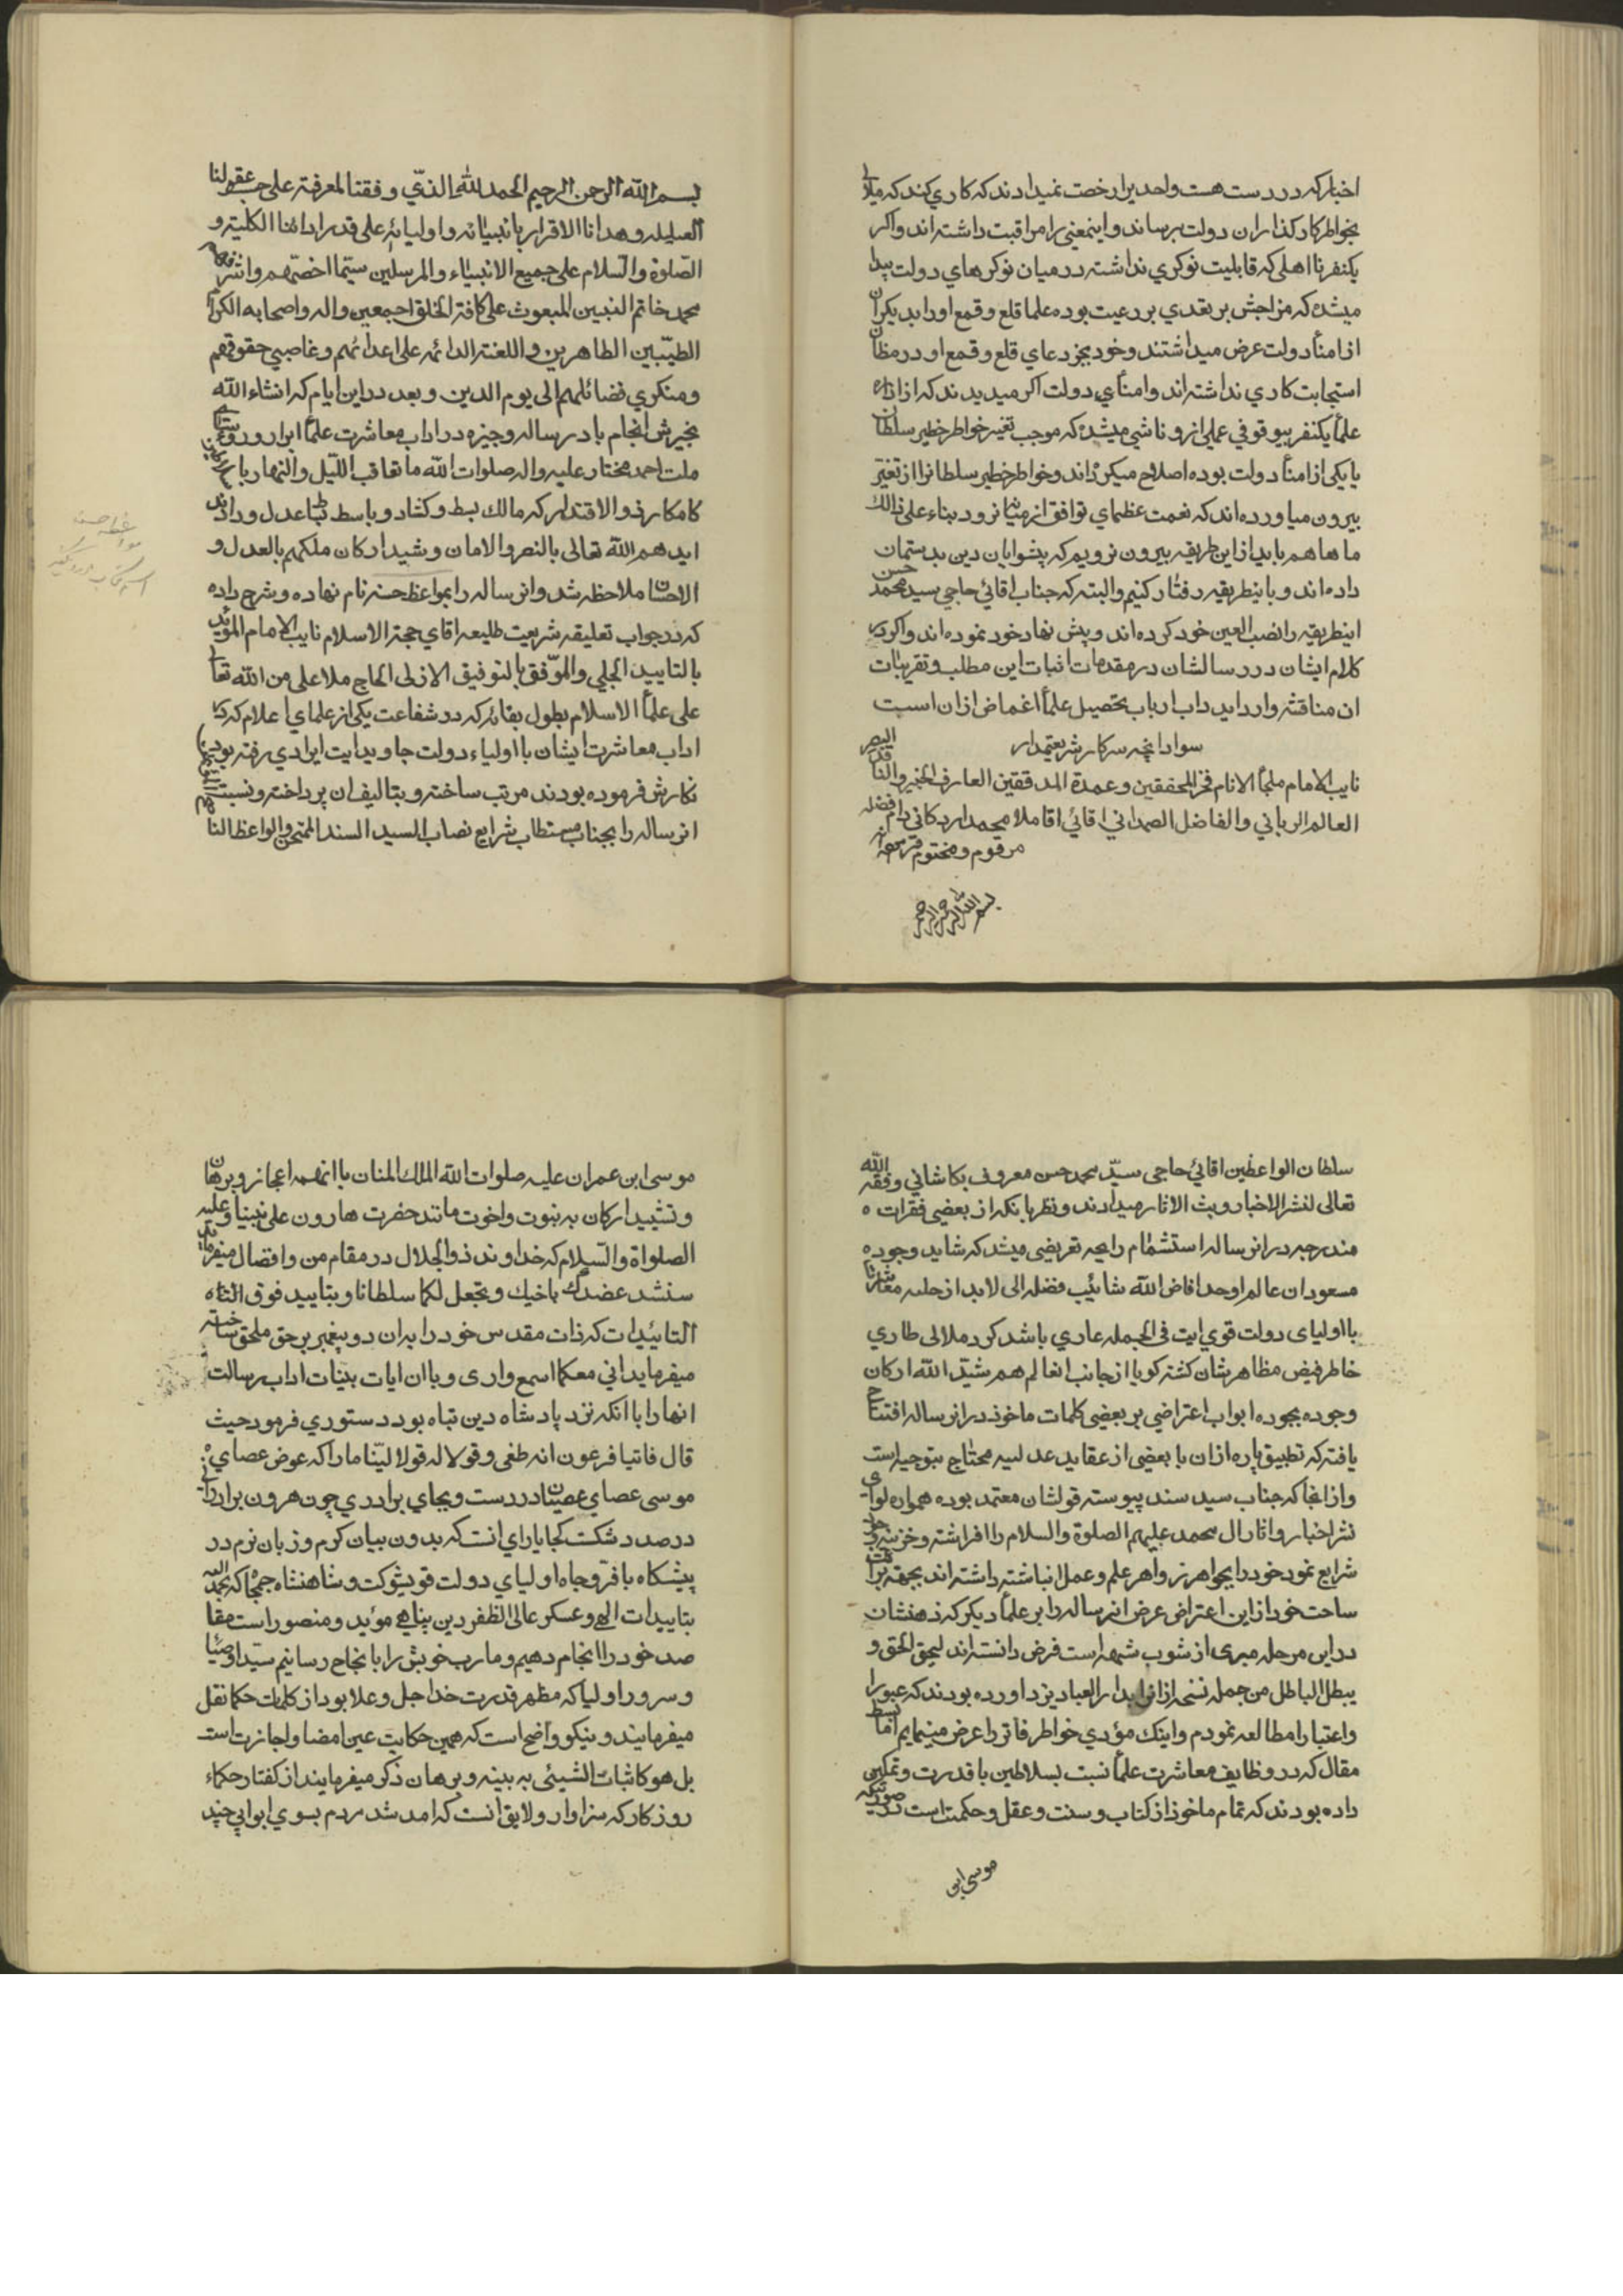 اخبار که در دست هست واحدیرا رخصت نمیدادند که کاری کند که ملالی
بخواطر کارکذاران دولت برساند و اینمعنی را مراقبت داشته اند واکر
یکنفر نااهلی که قابلیت نوکری نداشته در میان نوکرهای دولت پیدا
میشده که مزاجش بر تعدی بر رعیت بوده علما قلع و قمع اورا بدیکران
از امنأ دولت عرض میداشتند وخود بجز دعای قلع و قمع او در مظان
استجابت کاری نداشته اند وامنأی دولت اکر میدیدند که از اذاره
علمأ یکنفر بیوقوفی عملی ازو ناشی میشده که موجب تغیر خواطر خطیر سلطان
یا یکی از امنأ دولت بوده اصلاح میکرده‌اند وخواطر خطیر سلطانرا از تغیّر
بیرون میاورده‌اند که نعمت عظمای توافق از میانه نرود بناء علی ذالک
ما ها هم باید ازاین طریقه بیرون نرویم که پیشوایان دین بدستمان
داده‌اند و باینطریقه رفتار کنیم والبته که جناب اقائی حاجی سید محمد حسن
اینطریقه را نصب العین خود کرده‌اند و پیش نهاد خود نموده‌اند واکر در
کلام ایشان در رسالشان در مقدمات اثبات این مطلب و تقریبات
ان مناقشه وارد اید داب ارباب تحصیل علمأ اغماض ازان است
سواد انچه سرکار شریعتمدار
نایب الامام ملجأ الانام فخر المحققین وعمدة المدققین العارف الخبیر والناقد البصیر
العالم الربانی والفاضل الصمدانی اقائی اقا ملا محمد اردکانی دام فضله
مرقوم و مختوم فرموده‌اند
بسم الله الرحمن الرحیم
بسم الله الرحمن الرحیم الحمد لله الذّی وفقنا لمعرفته علی حسب عقولنا
العلیله وهدانا الاقرار بانبیائه واولیائه علی قدر ادائنا الکلیة و
الصّلوة والسّلام علی جمیع الانبیٰاء والمرسلین سیّما اخصّهم واشرفهم
محمد خاتم النبیین المبعوث علی کافة الخلق اجمعین واله واصحابه الکرام
الطیّبین الطاهرین واللعنة الدائمه علی اعدائهم وغاصبی حقوقهم
ومنکری فضائلهم الی یوم الدین وبعد دراین ایام که انشاء الله
بخیرش انجام باد رساله وجیزه در اداب معاشرت علمأ ابرار و روسای
ملت احمد مختار علیه واله صلوات الله ما تعاقب اللّیل والنهار با سلاطین
کامکار ذو الاقتدار که مالک بسط وکشاد و باسط بساط عدل و دادند
ایدهم الله تعالی بالنصر والامان وشید ارکان ملکهم بالعدل و
الاحسان ملاحظه شد وانرساله را بمواعظ حسنه نام نهاده و شرح داده
که در جواب تعلیقه شریعت طلیعه اقای حجة الاسلام نایب الامام المؤید
بالتایید الجلی والموّفق بالتوفیق الازلی الحاج ملا علی من الله تعالی
علی علمأ الاسلام بطول بقائه که در شفاعت یکی از علمای اعلام که در
اداب معاشرت ایشان با اولیاء دولت جاوید ایت ایرادی رفته بود
نکارش فرموده بودند مرتب ساخته و بتالیف ان پرداخته و نسبت
انرساله را بجناب مستطاب شرایع نصاب السید السند الممتحن والواعظ النا
سلطان الواعظین اقائی حاجی سیّد محمد حسن معروف بکاشانی وفقه الله
تعالی لنشر الاخبار و بث الاثار میدادند و نظر بانکه از بعضی فقرات
مندرجه درانرساله استشمٰام رایحه تعریضی میشد که شاید وجود
مسعود ان عالم اوحد افاض الله شائیب فضله الی لابد از حلیه معاشرت
با اولیای دولت قوی ایت فی الجمله عاری باشد کرد ملالی طاری
خاطر فیض مظاهرشان کشته کویا از جانب انعالم هم شید الله ارکان
وجوده بجوده ابواب اعتراضی بر بعضی کلمات ماخوذ درانرساله افتتاح
یافته که تطبیق پاره ازان با بعضی از عقاید عدلیه محتاج بتوجیه است
وازانجا که جناب سید سند پیوسته قولشان معتمد بوده همواره لوای
نشر اخبار واثار ال محمد علیهم الصلوة والسلام را افراشته و خزینه
شرایع نمود خود را بجواهر زواهر علم وعمل انباشته داشته‌اند بجهة برائت
ساحت خود ازاین اعتراض عرض انرساله را بر علمأ دیکر که ذهنشان
دراین مرحله مبری از شوب شبهه است فرض دانسته‌اند لیحق الحق و
یبطل الباطل من جمله نسخه ازانرا بدار العباد یزد اورده بودند که عبورا
واعتبارا مطالعه نمودم واینک مؤدی خواطر فاتر را عرض مینمایم اما بسط
مقال که در وظایف معاشرت علمأ نسبت بسلاطین با قدرت وتمکین
داده بودند که تمام ماخوذ از کتاب وسنت وعقل وحکمت است
موسی ابن
موسی ابن عمران علیه صلوات الله الملک المنان با انهمه اعجاز و برهان
وتشیید ارکان به بنوت واخوت مانند حضرت هارون علی نبینا وعلیه
الصلواة والسّلام که خداوند ذو الجلال در مقام من وافضال میفرماید
سنشد عضدک باخیک ونجعل لکما سلطانا وبتایید فوق الذاه
التائیدات که ذات مقدس خود را بدان دو پیغمبر بر حق ملحق ساخته
میفرماید انی معکما اسمع واری و با ان ایات بینات اداب رسالت
انها را با انکه نزد پادشاه دین تباه بود دستوری فرمود حیث
قال فاتیا فرعون انه طغی وقولا له قولا لیّنا ما را که عوض عصای
موسی عصای عصیان در دست و بجای برادری چون هرون برادران
در صدد شکست کجا یارای انست که بدون بیان کرم و زبان نرم در
پیشکاه با فرّ وجاه اولیای دولت قویشوکت وشاهنشاه جمجاه که بحمد الله
بتاییدات الهی وعسکر عالی الظفر دین پناهی مؤید ومنصور است مقا
صد خود را انجام دهیم ومارب خویش را بانجاح رسانیم سیّد اوصیا
و سرور اولیا که مظهر قدرت خدا جل وعلا بود از کلمات حکما نقل
میفرمایند و نیکو واضح است که همین حکایت عین امضا و اجازت است
بل هو کاثبات الشیئی به بینه وبرهان ذکر میفرمایند از کفتار حکماء
روزکار که سزاوار و لایق انست که امد شد مردم بسوی ابوابی چند